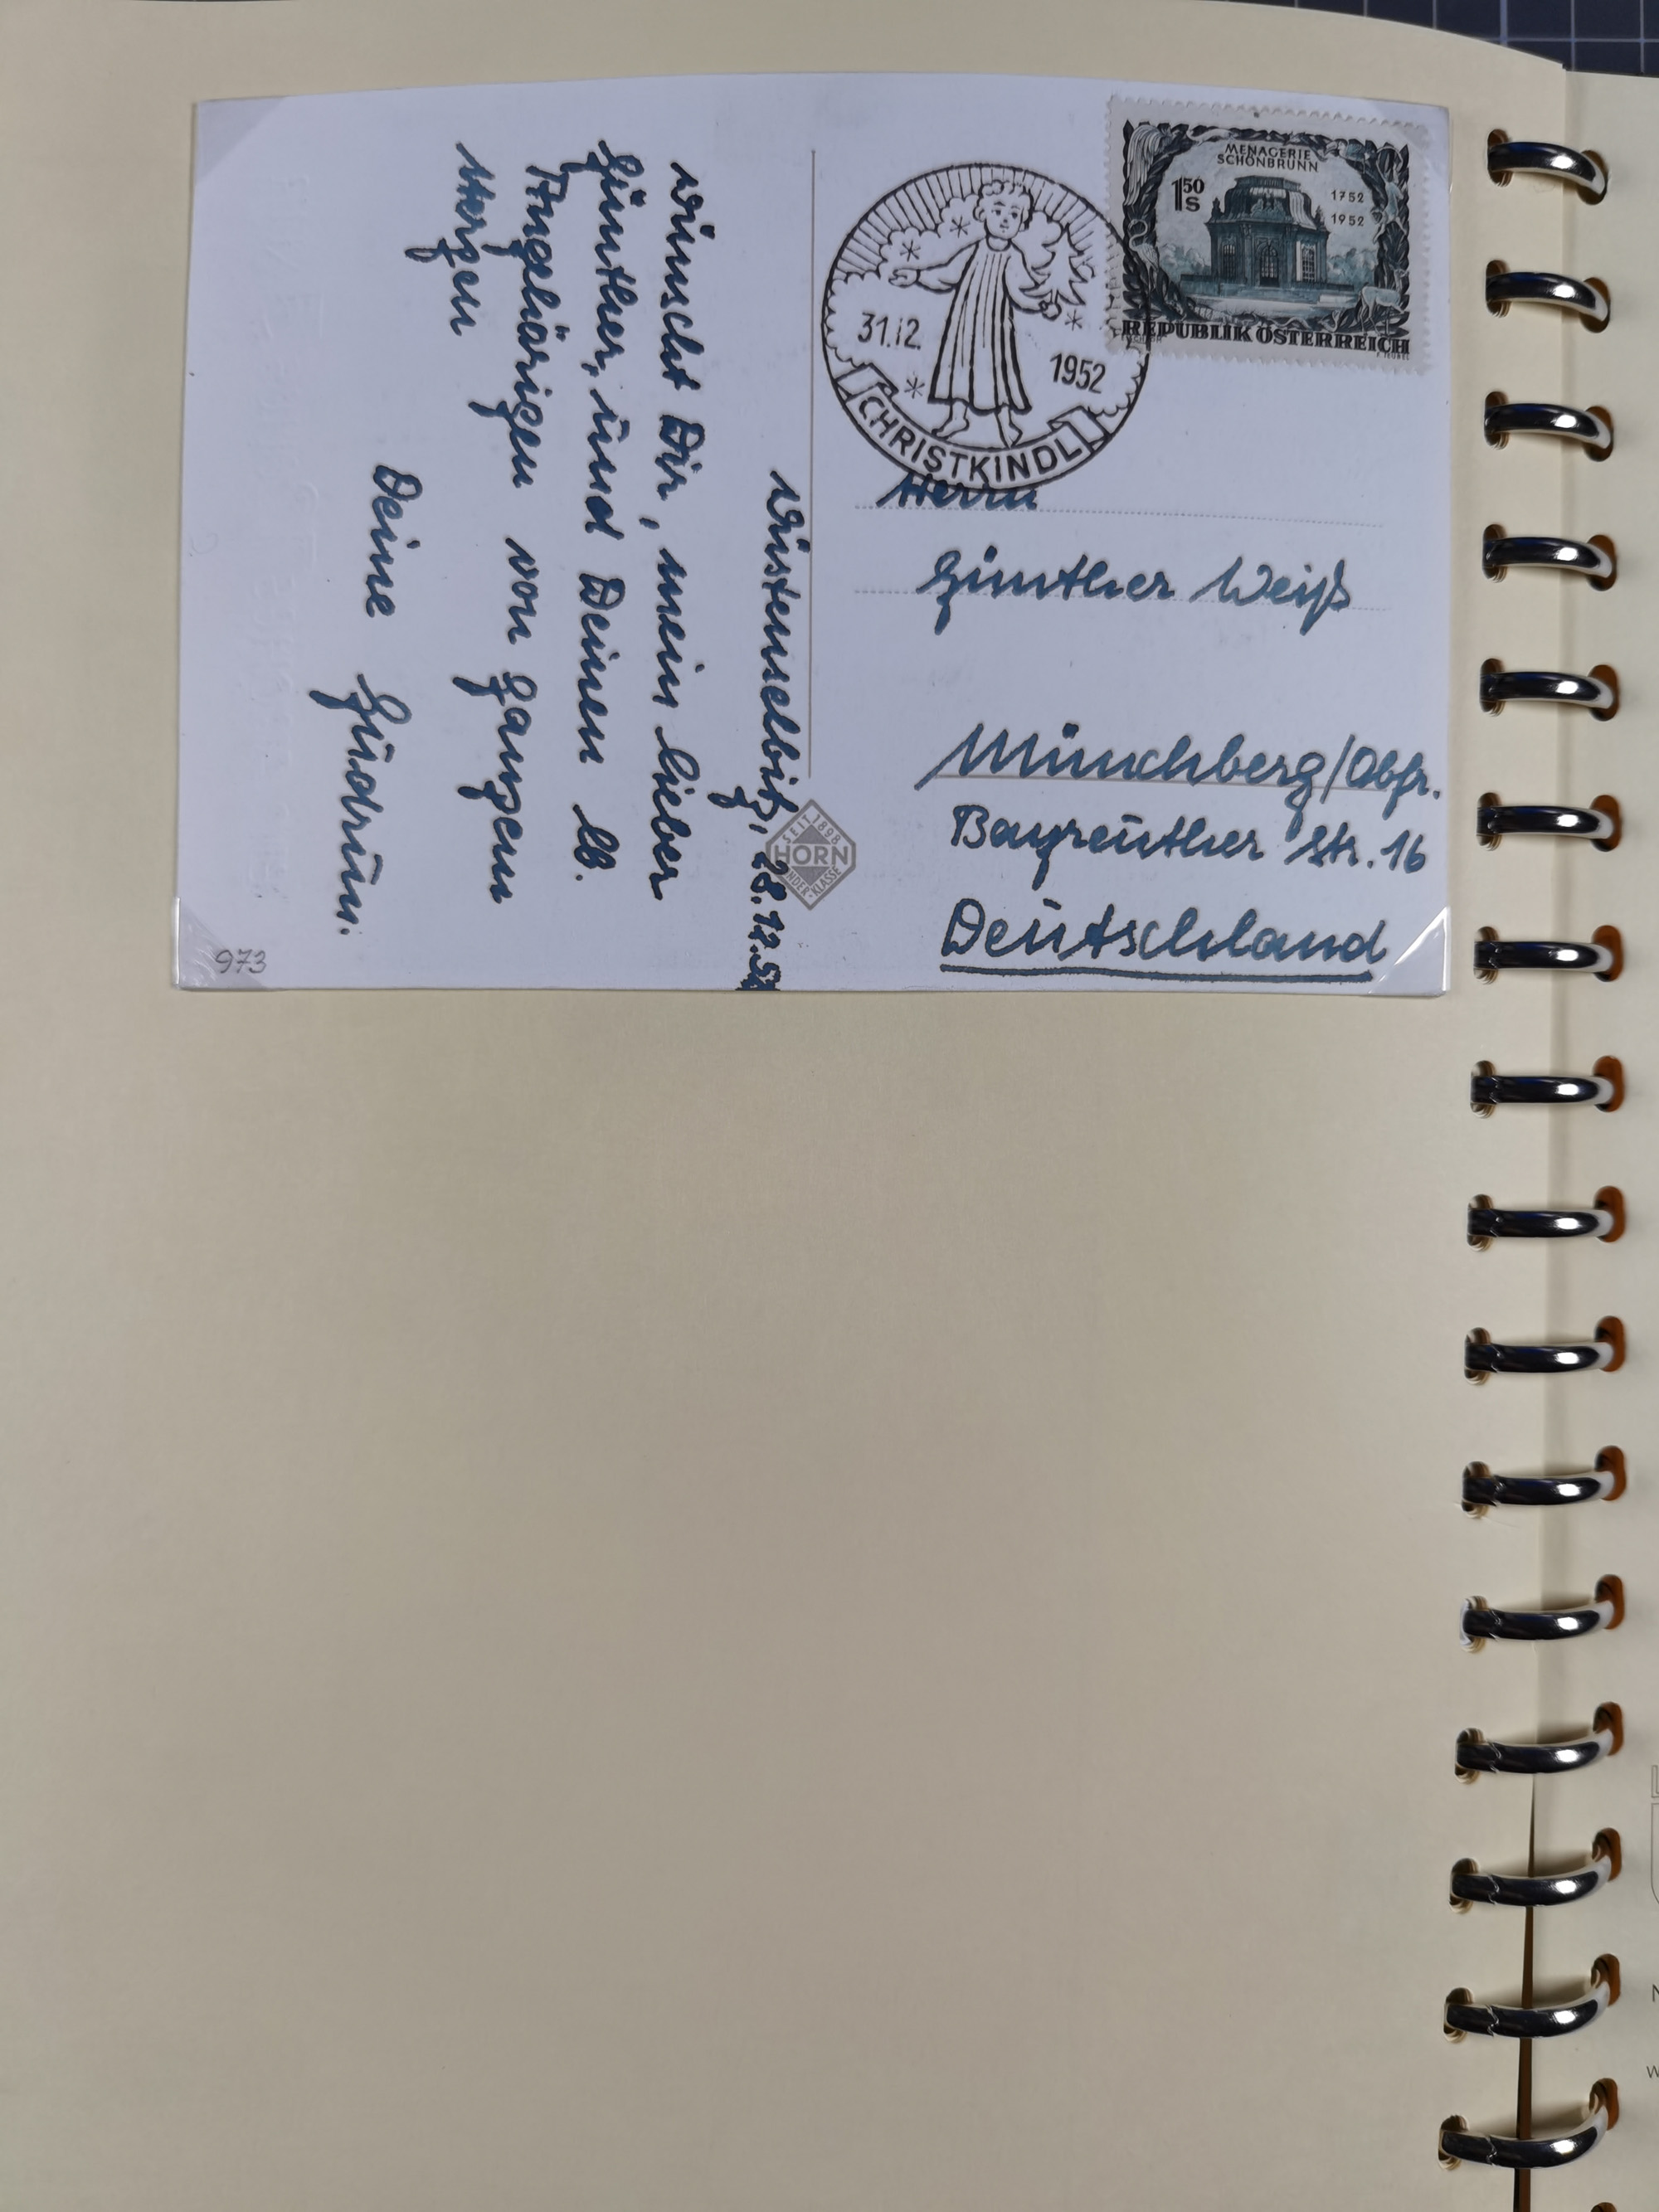 MENAGERIE
SCHÖNBRUNN
1 50 S
1752
1952
REPUBLIK ÖSTERREICH
31.12.
1952
CHRISTKINDL
Herrn
Günther Weiß
Münchberg/Obfr.
Bayreuther Str. 16
Deutschland
SEIT 1898
HORN
28.12.52
wünscht Dir, mein lieber
Günther, und Deinen lb.
Angehörigen von ganzem
Herzen
Deine Gudrun.
973